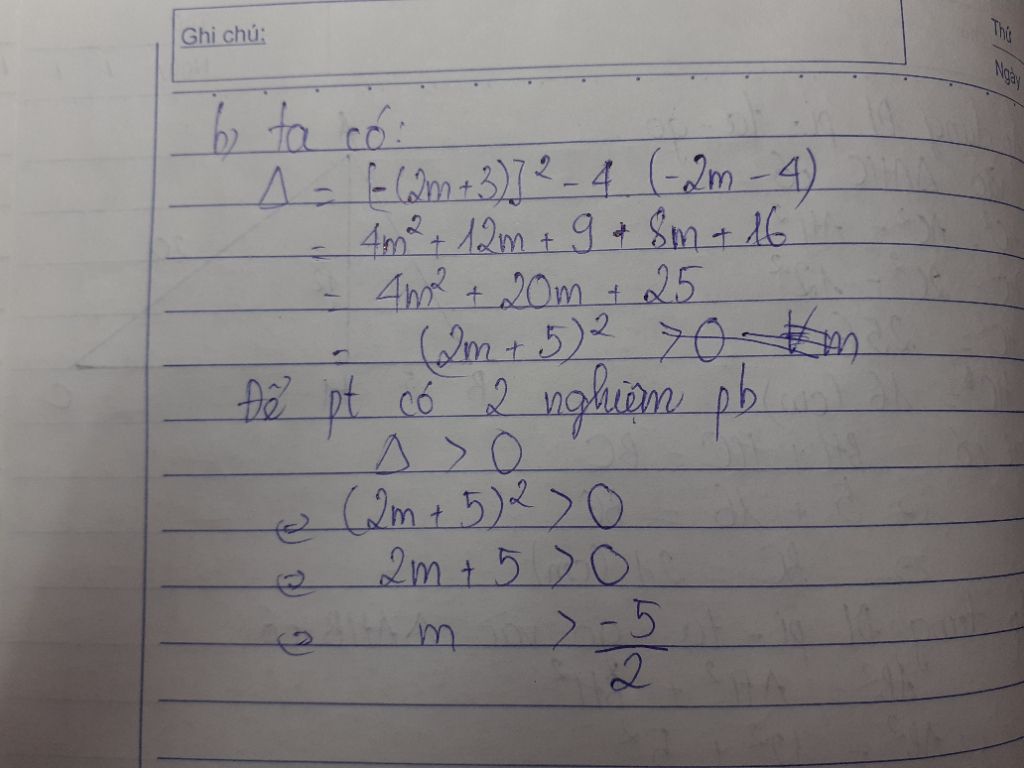 Ghi chú:
Thứ
Ngày
b) ta có:
Δ = [-(2m+3)]² - 4 (-2m - 4)
= 4m² + 12m + 9 + 8m + 16
= 4m² + 20m + 25
= (2m + 5)² > 0
Để pt có 2 nghiệm pb
Δ > 0
⇔ (2m + 5)² > 0
⇔ 2m + 5 > 0
⇔ m > -5/2